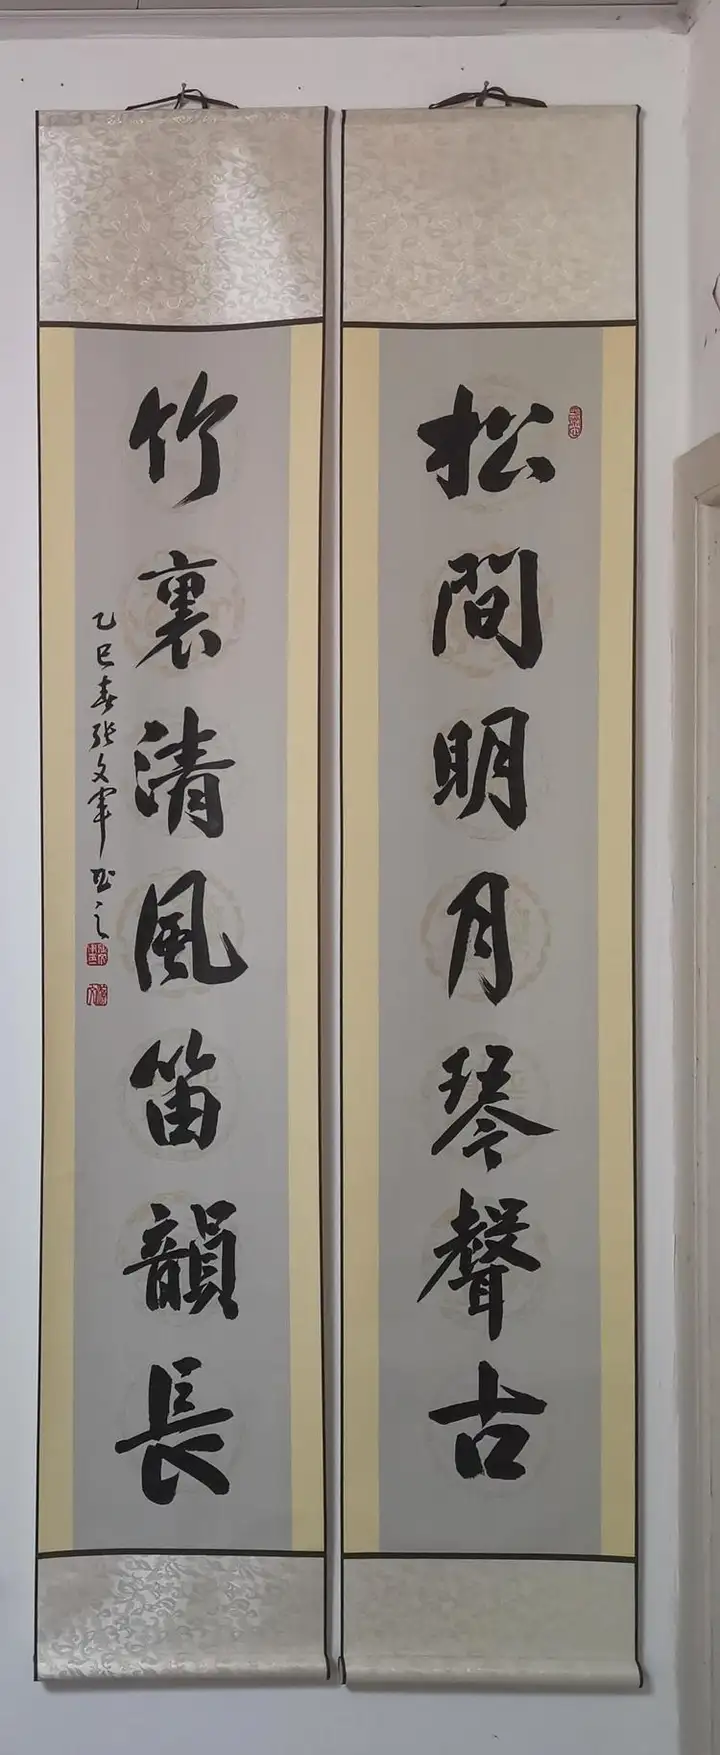 松間明月琴聲古
竹裏清風笛韻長
乙巳春張文軍書之